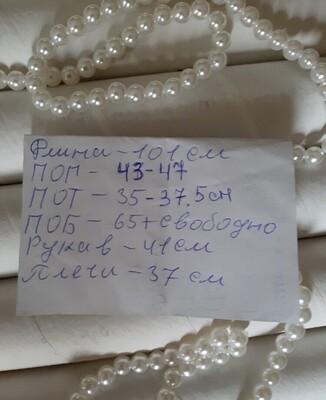 Длина - 101 см
ПОГ - 43-47
ПОТ - 35-37.5см
ПОБ - 65+ свободно
Рукав - 41см
Плечи - 37 см